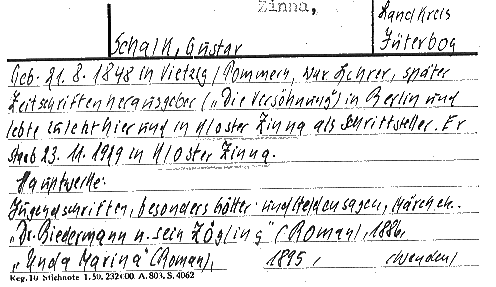 Zinna,
Landkreis
Schalk, Gustav
Jüterbog
Geb. 21. 8. 1848 in Vietzig / Pommern, war Lehrer, später
Zeitschriftenherausgeber („Die Versöhnung") in Berlin und
lebte zuletzt hier und in Kloster Zinna als Schriftsteller. Er
starb 23. 11. 1929 in Kloster Zinna.
Hauptwerke:
Jugendschriften, besonders Götter- und Heldensagen, Märchen.
„Dr. Biedermann u. sein Zögling" (Roman), 1886,
„Unda Marina" (Roman), 1895, (wenden)
Reg. 10 Stichnote 1. 50. 232000. A. 803. S. 4062